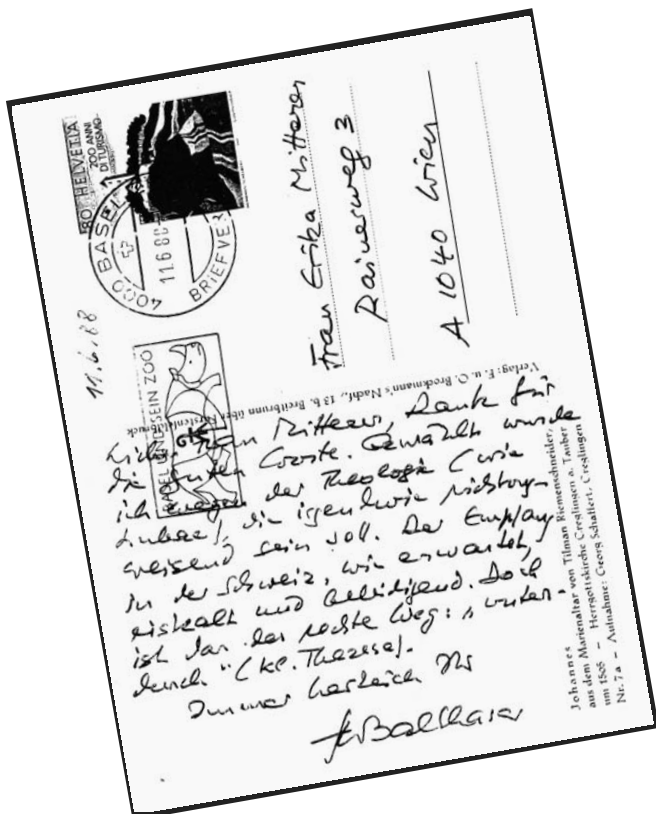 80 HELVETIA
200 ANNI
DI TURISMO
4000 BASEL
11.6.88
BRIEFVER
BASEL UND SEIN ZOO
11.6.88
Frau Erika Mitterer
Rainerweg 3
A 1040 Wien
Verlag: F. u. O. Brockmann's Nachf., 13 b. Breitbrunn über Fürstenfeldbruck
Liebe Frau Mitterer, Dank für
die guten Worte. Gewählt wurde
ich wegen der Theologie (wie
Lubac), die irgendwie richtung-
weisend sein soll. Der Empfang
in der Schweiz, wie erwartet,
eiskalt und beleidigend. Doch
ist das der rechte Weg: „unten-
durch" (kl. Therese).
Immer herzlich Ihr
Balthasar
Johannes
aus dem Marienaltar von Tilman Riemenschneider,
um 1505 – Herrgottskirche Creglingen a. Tauber
Nr. 7a – Aufnahme: Georg Schaffert, Creglingen